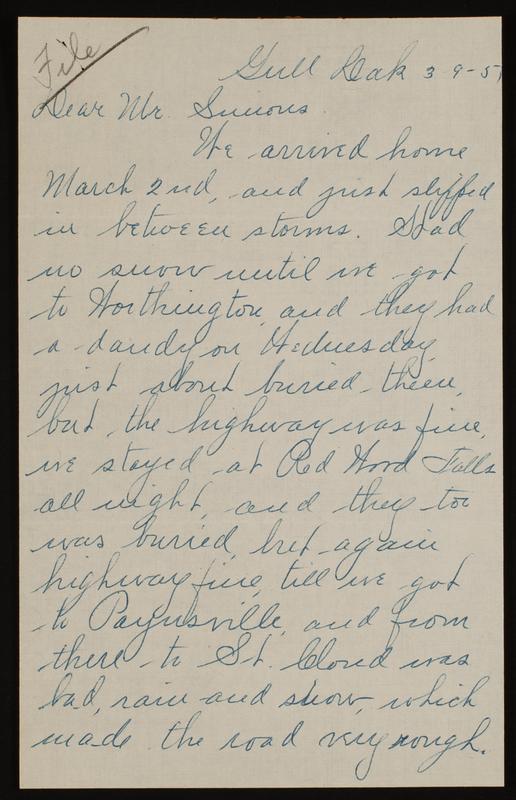 File
Gull Oak 3-9-51
Dear Mr. Simons.
We arrived home
March 2nd, and just slipped
in between storms. Had
no snow until we got
to Worthington, and they had
a dandy on Wednesday,
just about buried them,
but the highway was fine,
we stayed at Red Wood Falls
all night, and they too
was buried, but again
highway fine, till we got
to Paynsville, and from
there to St. Cloud was
bad, rain and snow, which
made the road very rough.